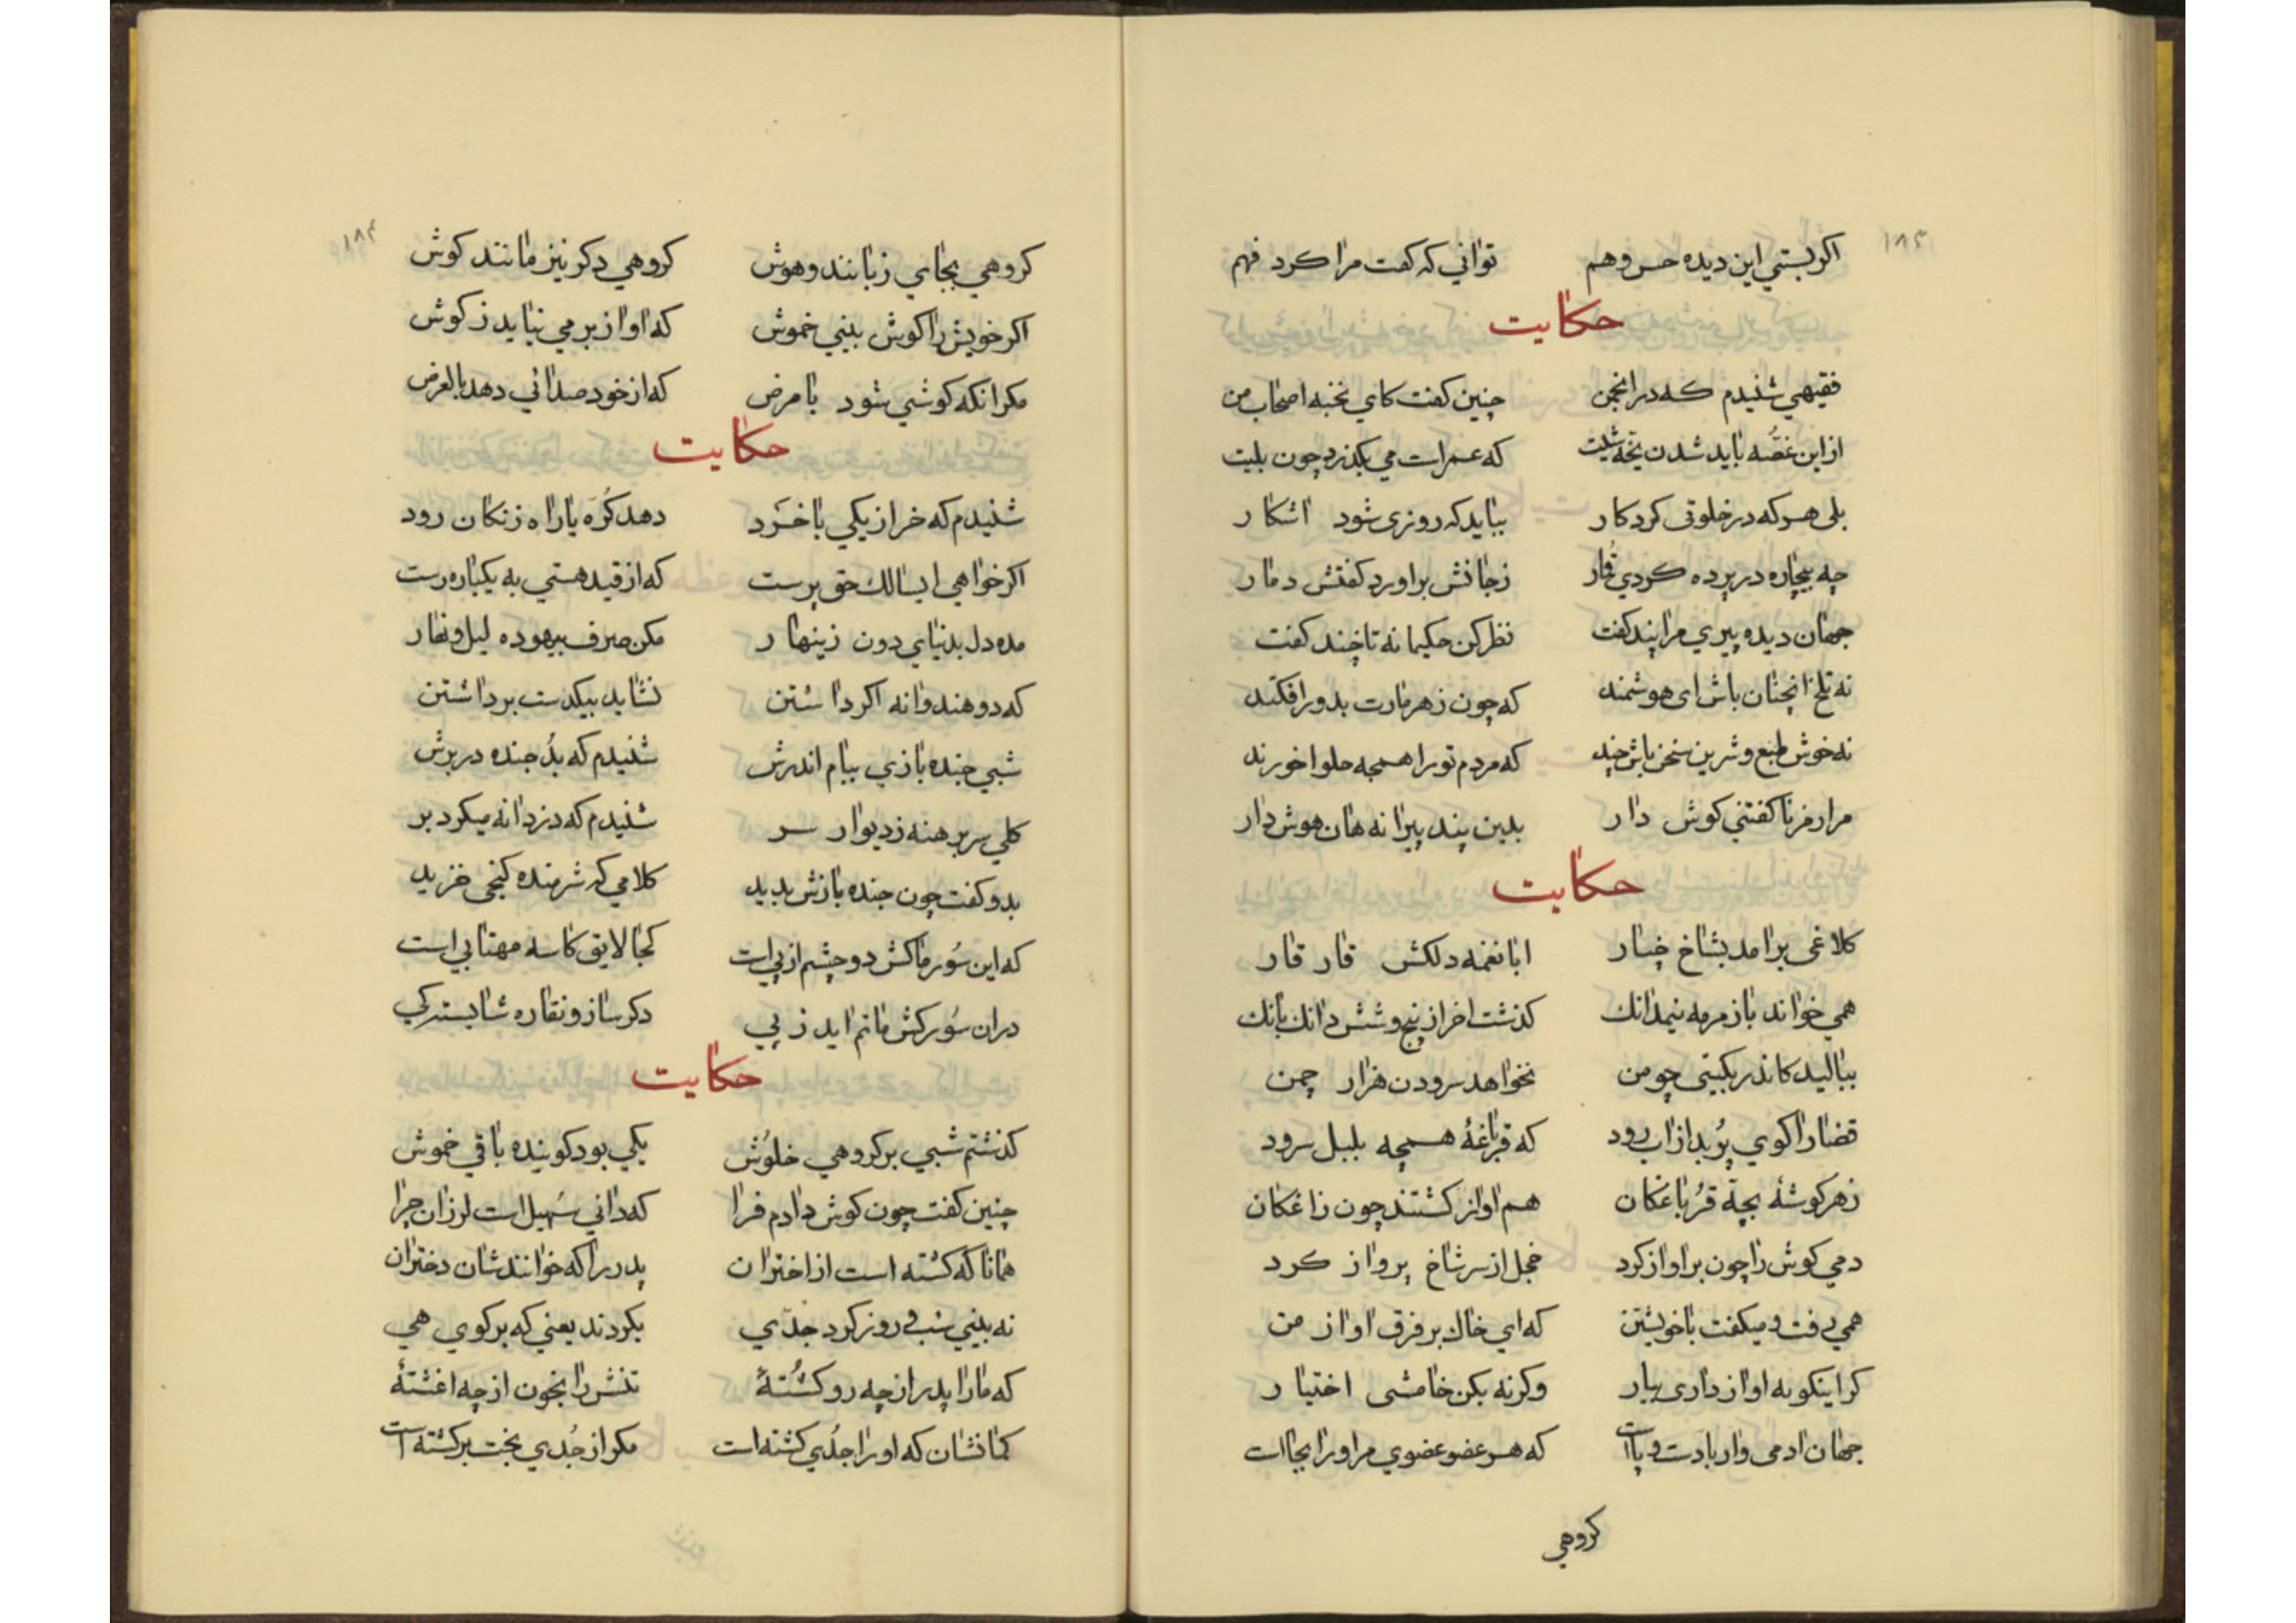 ۱۸۳
اکر بستي این دیده حس و هم تواني که کفت مرا کرد فهم
حکایت
فقیهي شنیدم که در انجمن چنین کفت کاي نخبه اصحاب من
از این غصّه باید شدن که عمرات مي بکذرد چون بلیت
بلی هر که در خلوتی کرد کار بباید که روزی شود اشکار
چه بیچاره در پرده کردي قمار زجانش براورد کفتش دمار
جهان دیده پیري مرا پند کفت نظر کن حکیمانه تا چند کفت
نه تلخ انچنان باش ای هوشمند که چون زهرمارت بدور افکنند
نه خوش طبع و شرین سخن باش چند که مردم تو را همچه حلوا خورند
مرا رمز ناکفتني کوش دار بدین پند پیرانه هان هوش دار
حکایت
کلاغی برامد بشاخ چنار ابا نغمه دلکش قار قار
همي خواند با زمرمه نیمدانك کذشت اخر از پنج و شش دانك بانك
ببالید کاندر بکیتی چو من نخواهد سرودن هزار چمن
قضا را کوي پُر بد از اب رود که قرباغهٔ همچه بلبل سرود
زهر کوشهٔ بچهٔ قُرباغکان هم اواز کشتند چون زاغکان
دمي کوش را چون بر اواز کرد خجل از سر شاخ پرواز کرد
همي رفت و میکفت با خویشتن که اي خاك بر فرق اواز من
کر اینکونه اواز داری بیار وکرنه بکن خامشی اختیار
جهان ادمی وار با دست و پا است که هر عضو عضوي مر او را بجا است
کروهي
۱۸۴
کروهي بجاي زبانند و هوش کروهي دکر نیز مانند کوش
اکر خویش را کوش بیني خموش که اواز بر می نیاید ز کوش
مکر انکه کوشي شود با مرض که از خود صدائي دهد بالعرض
حکایت
شنیدم که خر از یکي با خرَد دهد کُرَه یا راه زنکان رود
اکر خواهي ایسالك حق پرست که از قید هستي به یکباره رست
مده دل بدنیاي دون زینهار مکن صرف بیهوده لیل و نهار
که دو هندوانه اکر داشتن نشاید بیکدست برداشتن
شبي جنده بازي ببام اندرش شنیدم که بُد جنده در برش
کلي سر برهنه ز دیوار سر شنیدم که دزدانه میکرد بر
بدو کفت چون جنده بازش بدید کلامي که شرمنده کنجی خزید
که این سُور ماکش دو چشم از پي است کجا لایق کاسه مهتابي است
دران سُور کش ماتم اید ز پي دکر ساز و نقاره شایسته کي
حکایت
کذشتم شبي بر کروهي خلوُش یکي بود کوینده باقي خموش
چنین کفت چون کوش دادم فرا که داني سُهیل است لرزان چرا
همانا که کشته است از اختران پدر را که خوانندشان دختران
نه بیني شب و روز کرد جدَي بکردند یعني که بر کوي هي
که مارا پدر از چه رو کشُتهٔ تنش را بخون از چه اغشتهٔ
کمانشان که او را جدُي کشته است مکر از جُدي بخت برکشته است